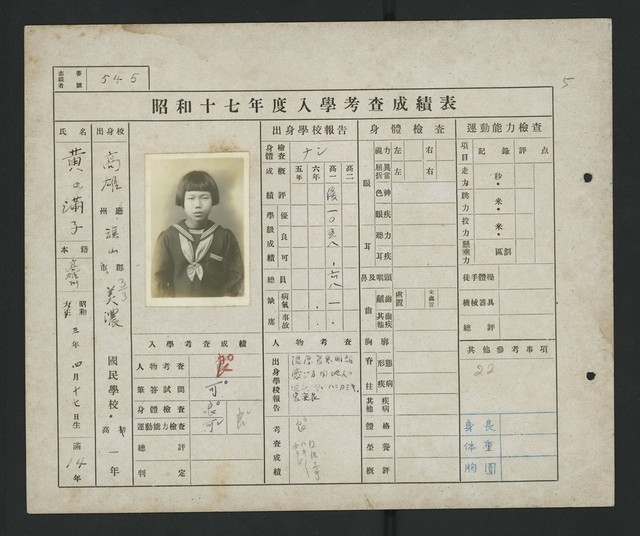 志願者番號
545
5
昭和十七年度入學考查成績表
氏名
黃氏滿子
出身校
高雄 州廳
旗山 市郡
美濃
國民學校
高初 一年
本籍
高雄州
昭和 三年四月十七日生
滿14年
入學考查成績
人物考査 良
筆答試問 可
身體檢查 良
運動能力檢查 可
良
總評
判定
出身學校報告
身體檢査 ナシ
成績概評
五年
六年
高一
高二
學級成績
優
良
可
總員
缺席
病氣
事故
人物考査
出身學校報告
考査成績
良
身體檢查
眼
視力 左 右
屈折異常 左 右
色神
眼疾
耳
聽力
耳疾
鼻及咽頭
齒
齲齒 處置 未處置
其他齒疾
胸廓
脊柱
形態
疾病
其他疾病
體格
榮養
概評
運動能力檢查
項目 記錄 評點
走力 秒・
跳力 米・
投力 米・
懸垂力 區劃
徒手體操
機械器具
總評
其他參考事項
22
身長
体重
胸圍